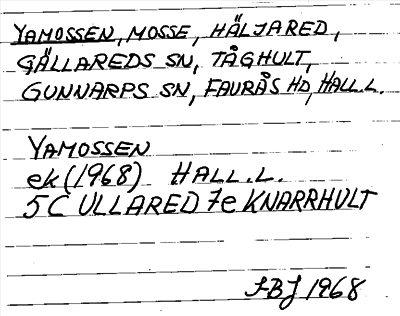 YAMOSSEN, MOSSE, HÄLJARED,
GÄLLAREDS SN, TÅGHULT,
GUNNARPS SN, FAURÅS HD, HALL.L.
YAMOSSEN
ek (1968) HALL.L.
5C ULLARED 7e KNARRHULT
SBJ 1968